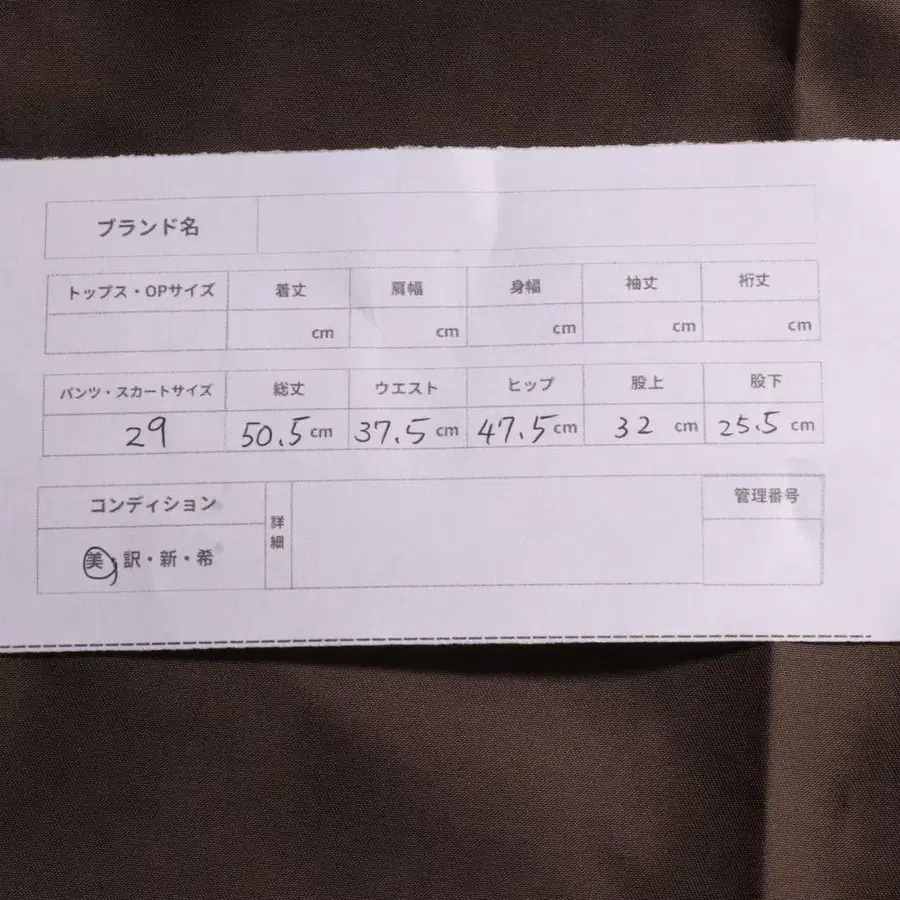 ブランド名
トップス・OPサイズ 着丈 肩幅 身幅 袖丈 裄丈
cm cm cm cm cm
パンツ・スカートサイズ 総丈 ウエスト ヒップ 股上 股下
29 50.5cm 37.5cm 47.5cm 32cm 25.5cm
コンディション 詳細 管理番号
美・訳・新・希